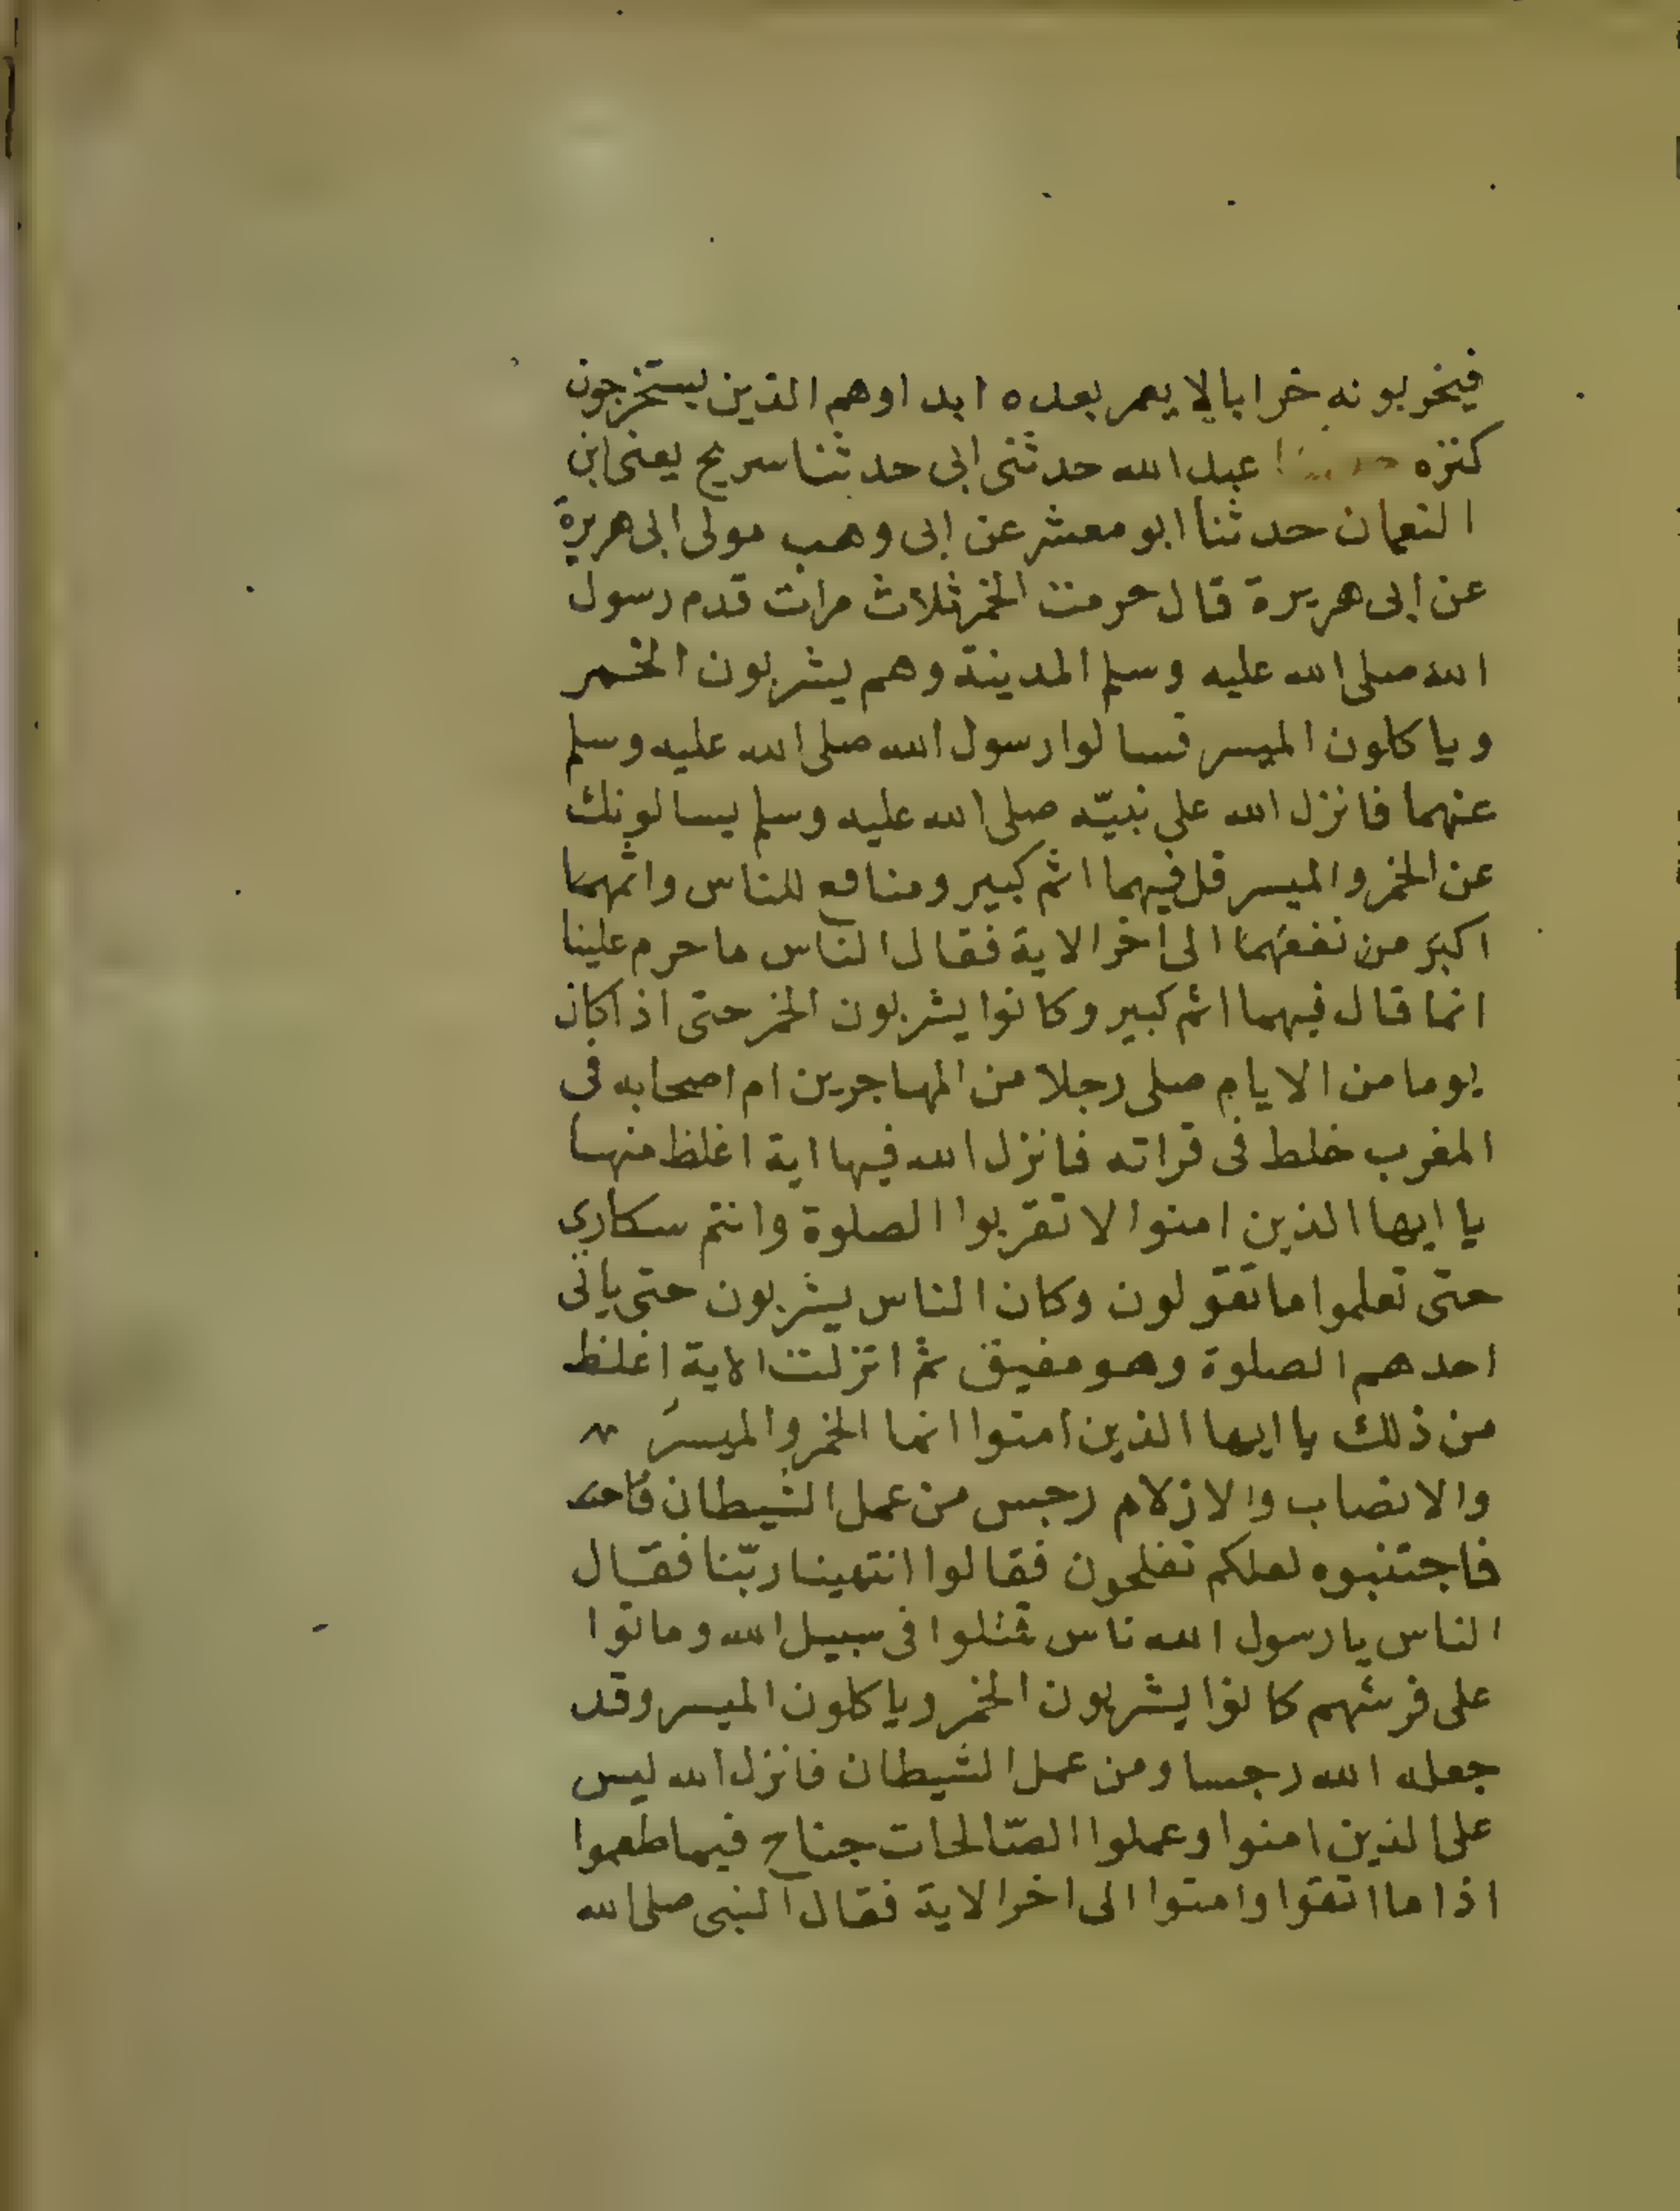 فيخربونه خرابا لا يعمر بعده ابدا وهم الذين يستخرجون
كنزه حدثنا عبد الله حدثنى ابى حدثنا سريج يعنى ابن
النعمان حدثنا ابو معشر عن ابى وهب مولى ابى هريرة
عن ابى هريرة قال حرمت الخمر ثلاث مرات قدم رسول
الله صلى الله عليه وسلم المدينة وهم يشربون الخمر
وياكلون الميسر فسالوا رسول الله صلى الله عليه وسلم
عنهما فانزل الله على نبيّه صلى الله عليه وسلم يسالونك
عن الخمر والميسر قل فيهما اثم كبير ومنافع للناس واثمهما
اكبر من نفعهما الى اخر الاية فقال الناس ما حرم علينا
انما قال فيهما اثم كبير وكانوا يشربون الخمر حتى اذا كان
يوما من الايام صلى رجلا من المهاجرين ام اصحابه فى
المغرب خلط فى قراته فانزل الله فيها اية اغلظ منها
يا ايها الذين امنوا لا تقربوا الصلوة وانتم سكارى
حتى تعلموا ما تقولون وكان الناس يشربون حتى ياتى
احدهم الصلوة وهو مفيق ثم انزلت الاية اغلظ
من ذلك يا ايها الذين امنوا انما الخمر والميسر
والانصاب والازلام رجس من عمل الشيطان
فاجتنبوه لعلكم تفلحون فقالوا انتهينا ربّنا فقال
الناس يا رسول الله ناس قتلوا فى سبيل الله وماتوا
على فرشهم كانوا يشربون الخمر وياكلون الميسر وقد
جعله الله رجسا ومن عمل الشيطان فانزل الله ليس
على الذين امنوا وعملوا الصّالحات جناح فيما طعموا
اذا ما اتقوا وامنوا الى اخر الاية فقال النبى صلى الله